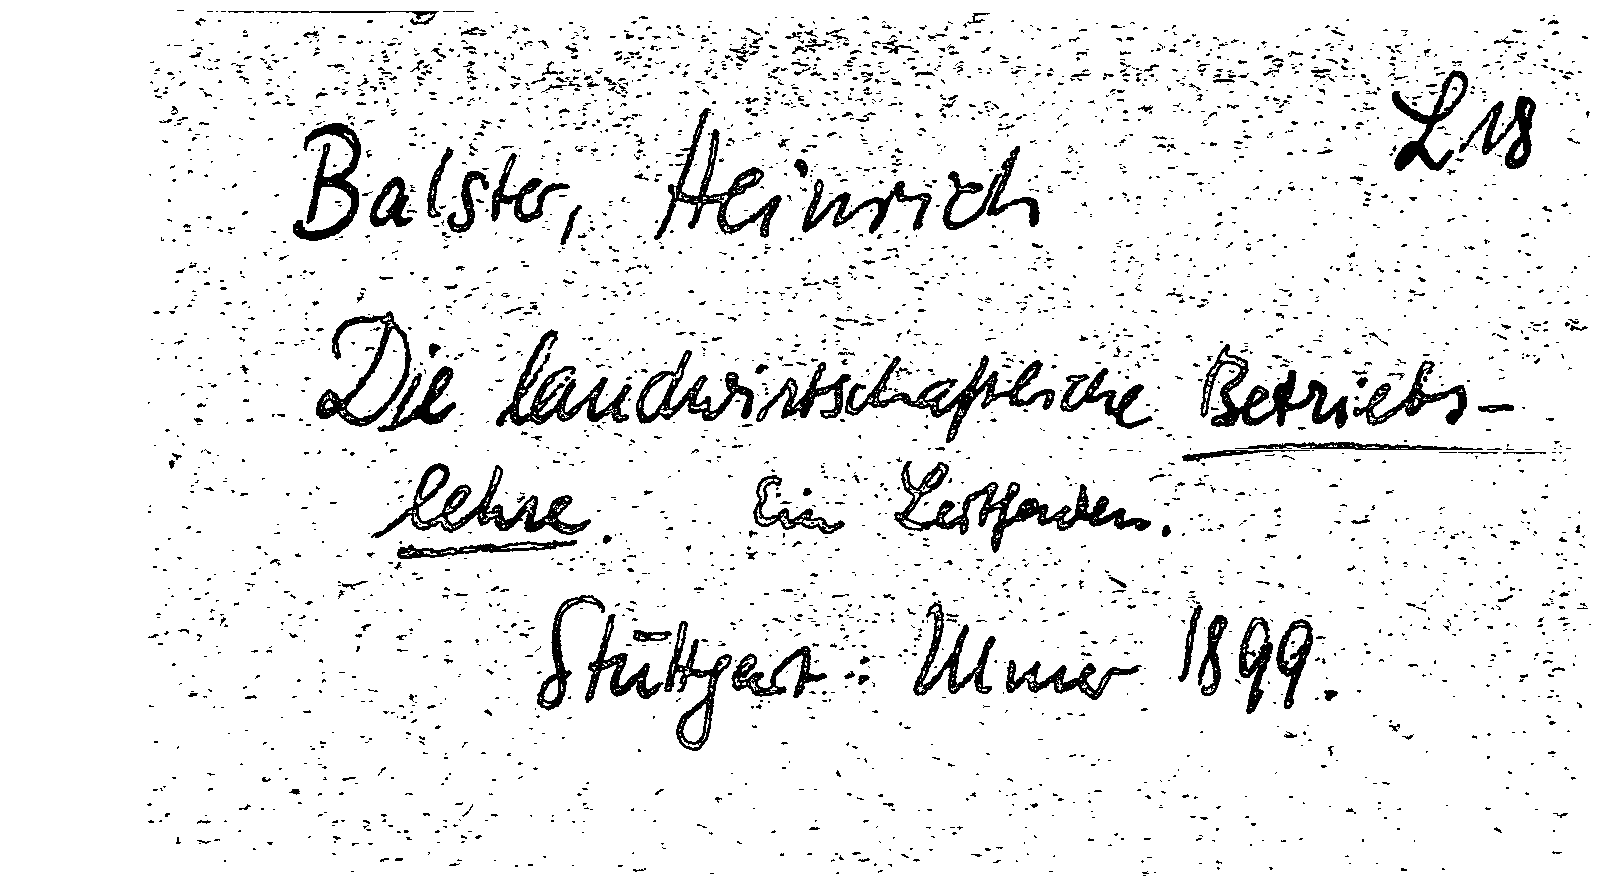 L 18
Balster, Heinrich
Die landwirtschaftliche Betriebs-
lehre. Ein Leitfaden.
Stuttgart: Ulmer 1899.